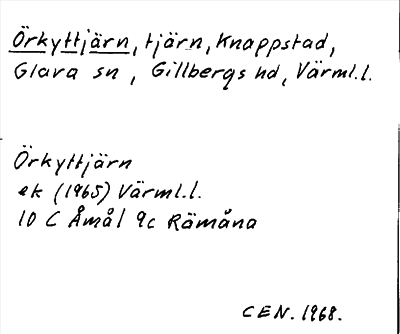 Örkyttjärn, tjärn, Knappstad,
Glava sn, Gillbergs hd, Värml.l.
Örkyttjärn
ek (1965) Värml.l.
10 C Åmål 9c Rämåna
CEN. 1968.